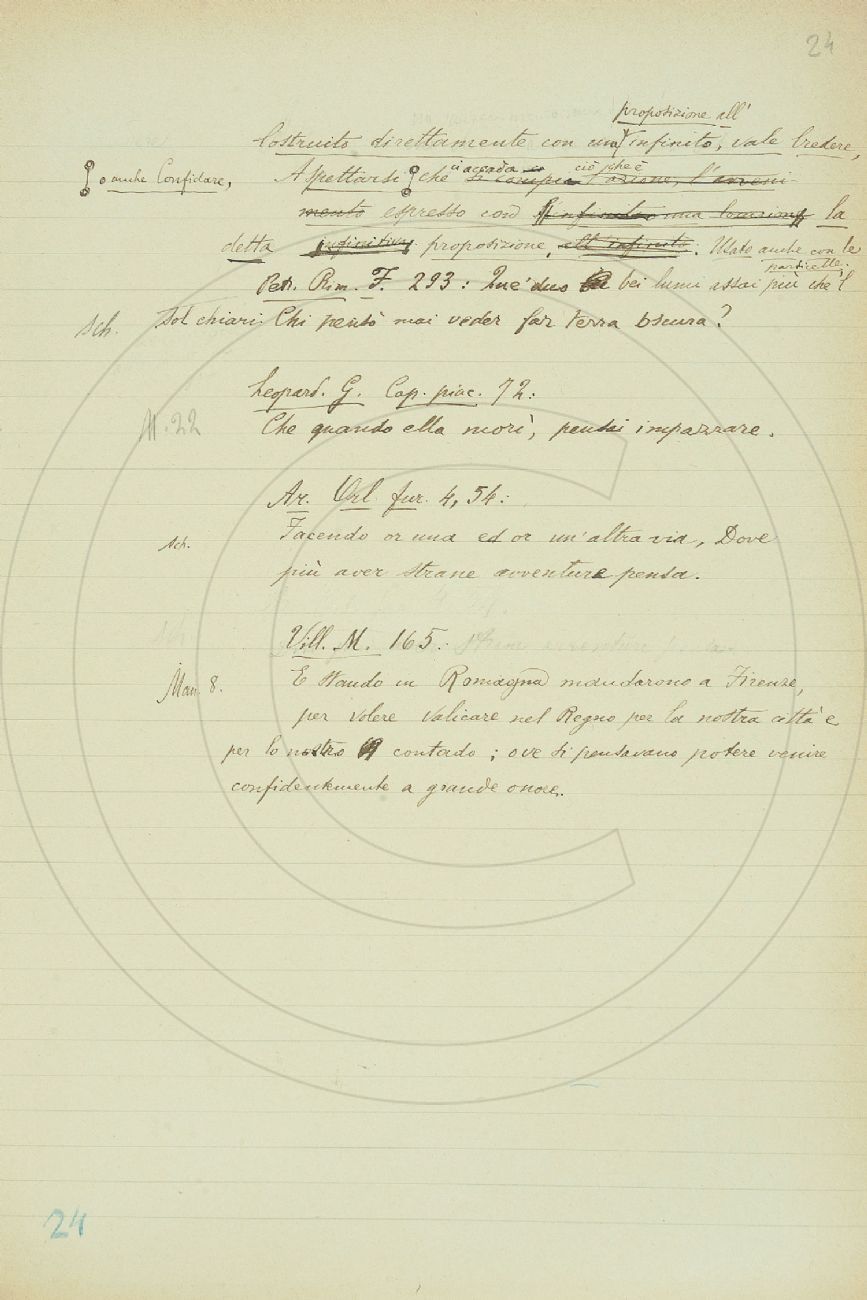 24
proposizione all'
Costruito direttamente con una infinito, vale Credere,
o anche Confidare,
Aspettarsi che ci accada si compia ciò che è l'azione, l'avveni
mento espresso con infinito una la
detta infinitiva proposizione, all'infinito. Usato anche con le
particelle.
Petr. Rim. F. 293: Que' duo bei lumi assai più che 'l
sch. Sol chiari Chi pensò mai veder far terra oscura?
Leopard. G. Cap. piac. 72:
M. 22 Che quando ella morì, pensai impazzare.
Ar. Orl. fur. 4, 54:
sch. Facendo or una ed or un'altra via, Dove
più aver strane avventure pensa.
Vill. M. 165:
Man. 8. E stando in Romagna mandarono a Firenze,
per volere valicare nel Regno per la nostra città e
per lo nostro contado; ove si pensavano potere venire
confidentemente a grande onore.
24